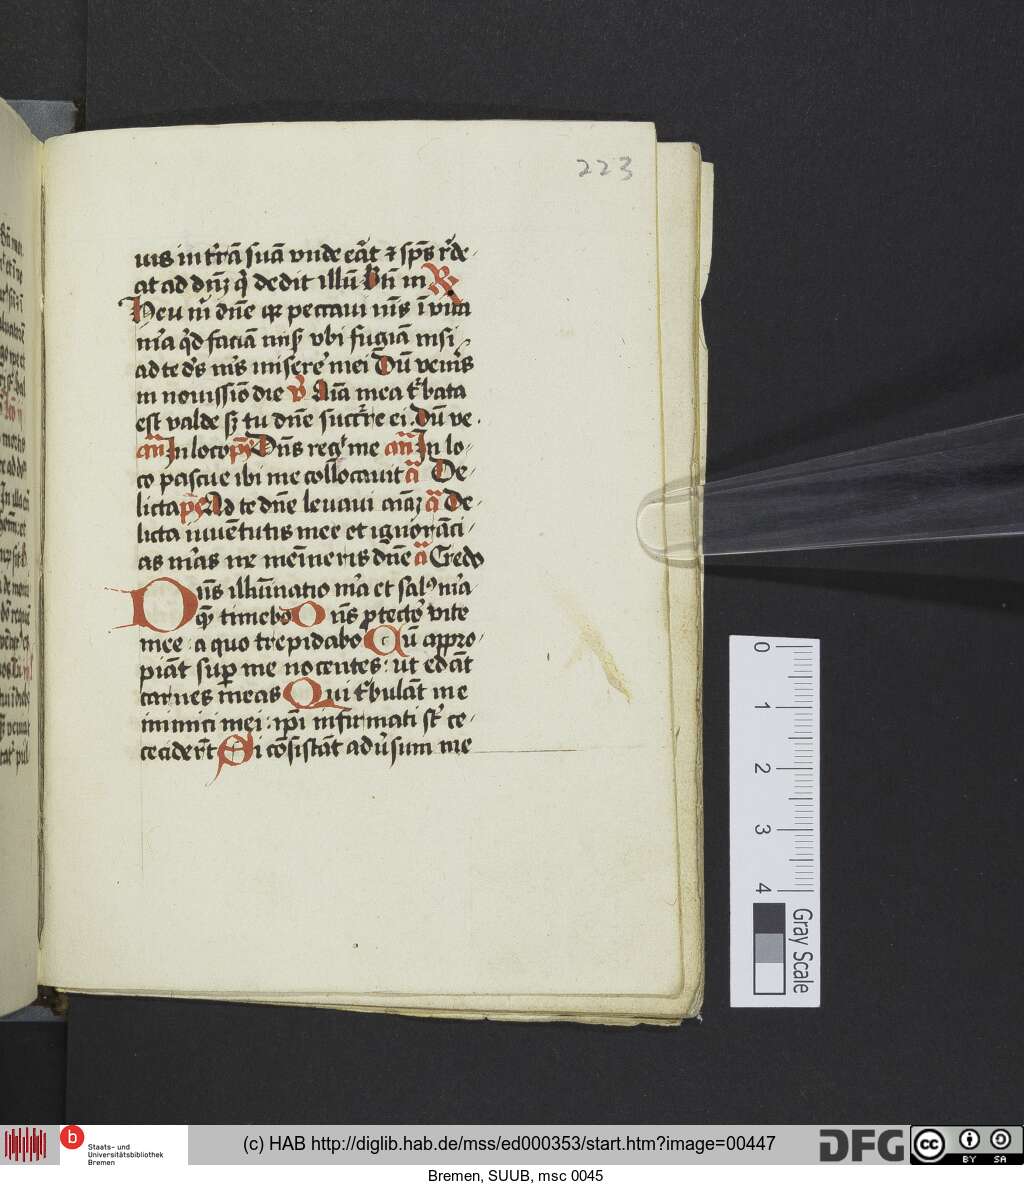 223
uis in t̄rā suā vnde eāt ⁊ sp̄s r̄de
at ad dn̄ꝫ q̇ dedit illū Bn̄ in ℟
Heu m̄ dn̄e qꝛ peccaui nīs ī vita
m̄a q̇d faciā misꝰ vbi fugiā nisi
ad te dꝰs mꝰs miserere mei Dū venꝰis
in nouissiōo die ꝟ Aīa mea tᷓbata
est valde sꝫ tu dn̄e succᷓre ei. Dū ve
an̄ In loco ps̄ Dn̄s regᷓt me an̄ In lo
co pascue ibi me collocauit a De
licta ps̄ Ad te dn̄e leuaui aīaꝫ a De
licta iuuētutis mee et ignorāci
as m̄as ne memīneris dn̄e a Credo
Dn̄s illūinatio m̄a et salꝰ m̄a
qᷓ timebo Dn̄s ꝓtectoᷓ vite
mee : a quo trepidabo Cū appro
piāt suꝑ me nocentes : ut edāt
carnes meas Qui tᷓbulāt me
inimici mei : ip̄i infirmati st̄ ce
cecider̄t Si cōsistāt aduꝰsum me
0
1
2
3
4
Gray Scale
b Staats- und
Universitätsbibliothek
Bremen
(c) HAB http://diglib.hab.de/mss/ed000353/start.htm?image=00447
DFG
cc BY SA
Bremen, SUUB, msc 0045